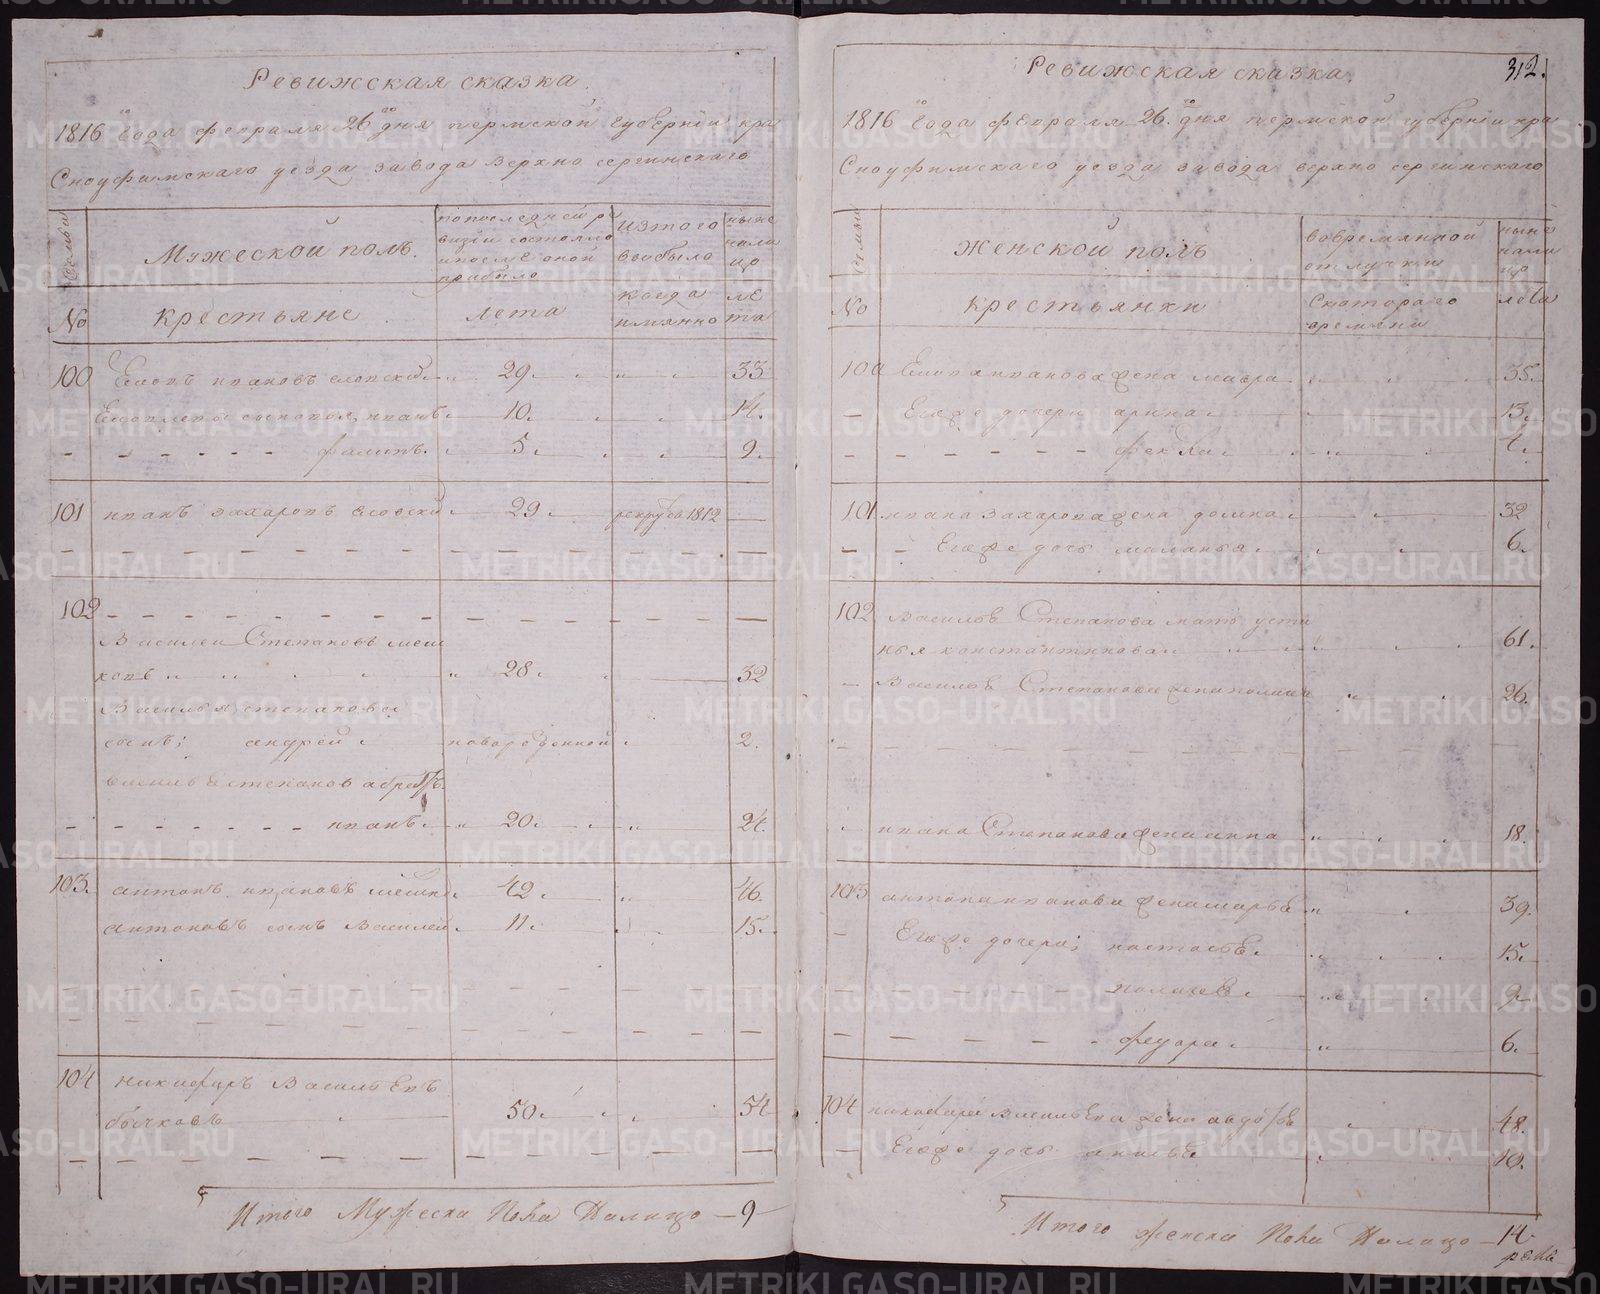 Ревижская сказка.
1816 го года февраля 26 го дня пермской губернiи кра
сноуфимскаго уезда завода верхно сергинскаго
семьи
Мужеской полъ.
попоследней ре
визiи состояло
ипосле оной
прибыло
изтого
выбыло
ныне
нали
цо
No
крестьяне
лета
когда
имянно
ле
та
100 Есипъ ивановъ 29 33
сыновья, иванъ 10. 14.
филипъ. 5 9.
101 иванъ захаровъ 29 рекруты 1812
102
Василеи Степановъ меш
ковъ 28 32
Василья степанова
сынъ; андрей новорожденной 2.
василья степанов абратъ.
иванъ 20. 24.
103. антонъ ивановъ 42 46.
антоновъ сынъ Василей 11. 15.
104 никифоръ Васильевъ
бычковъ 50. 54
Итого Мужеска Пола Налицо 9
312.
Ревижская сказка.
1816 го года февраля 26. го дня пермской губернiи кра
сноуфимскаго уезда завода верхно сергинскаго
семьи
Женской полъ
вовременной
отлучки
ныне
нали
цо
No
крестьянки
Скотораго
времяни
лета
100 Есипа иванова жена мавра 35.
Егоже дочери арина 13.
фекла 4.
101 ивана захарова жена домна 32
Егоже дочь маланья 6.
102 Василья Степанова мать усти
нья константинова 61.
Василья Степанова жена 26.
ивана Степанова жена анна 18.
103 антона иванова жена марья 39.
Егоже дочери; настасья 15.
9
6.
104 никифора Васильева жена авдотья 48.
Егоже дочь 10.
Итого женска Пола Налицо 14.